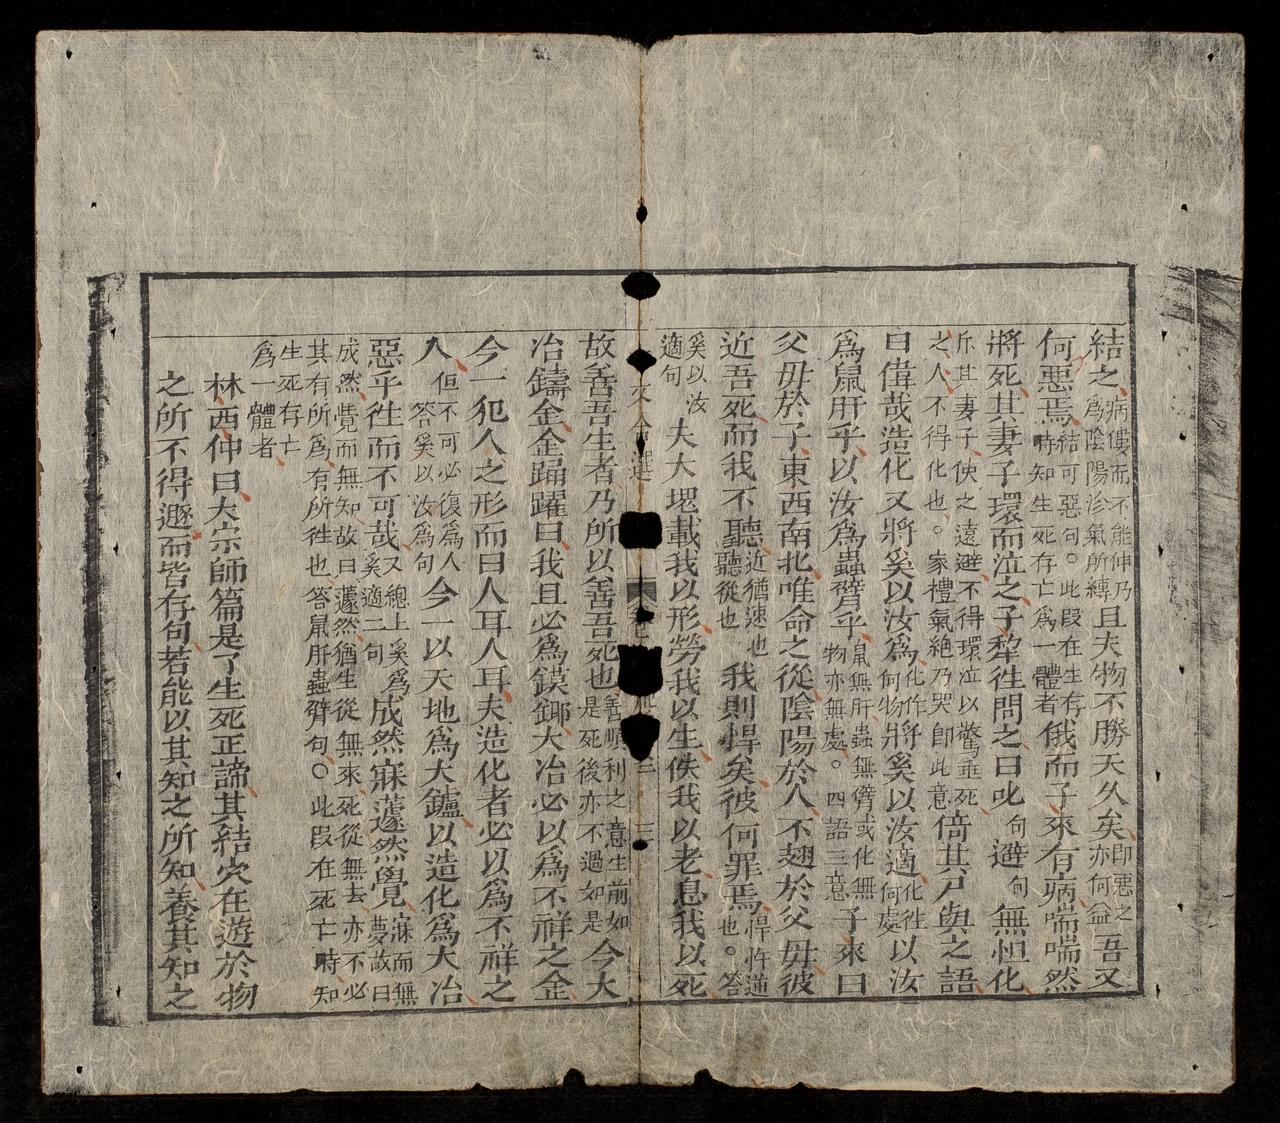 結之病僂而不能伸乃爲陰陽沴氣所縛且夫物不勝天久矣卽惡之亦何益吾又
何惡焉結可惡句。此段在生存時知生死存亡爲一體者俄而子來有病喘喘然
將死其妻子環而泣之子犂徃問之曰叱句避句無怛化
斥其妻子使之遠避不得環泣以驚垂死之人不得化也。家禮氣絶乃哭卽此意倚其戸與之語
曰偉哉造化又將奚以汝爲化作何物將奚以汝適化徃何處以汝
爲鼠肝乎以汝爲蟲臂乎鼠無肝蟲無臂或化無物亦無處。四語三意子來曰
父毋於子東西南北唯命之從陰陽於人不翅於父毋彼
近吾死而我不聽近猶速也聽從也我則悍矣彼何罪焉悍忤逆也。答
奚以汝適句夫大塊載我以形勞我以生佚我以老息我以死
故善吾生者乃所以善吾死也善順利之意生前如是死後亦不過如是今大
冶鑄金金踊躍曰我且必爲鏌鋣大冶必以爲不祥之金
今一犯人之形而曰人耳人耳夫造化者必以爲不祥之
人但不可必復爲人答奚以汝爲句今一以天地爲大鑪以造化爲大冶
惡乎徃而不可哉又總上奚爲奚適二句成然寐蘧然覺寐而無夢故曰
成然覺而無知故曰蘧然猶生從無來死從無去亦不必其有所爲有所徃也答鼠肝蟲臂句。此段在死亡時知
生死存亡爲一體者
林西仲曰大宗師篇是了生死正諦其結穴在遊於物
之所不得遯而皆存句若能以其知之所知養其知之